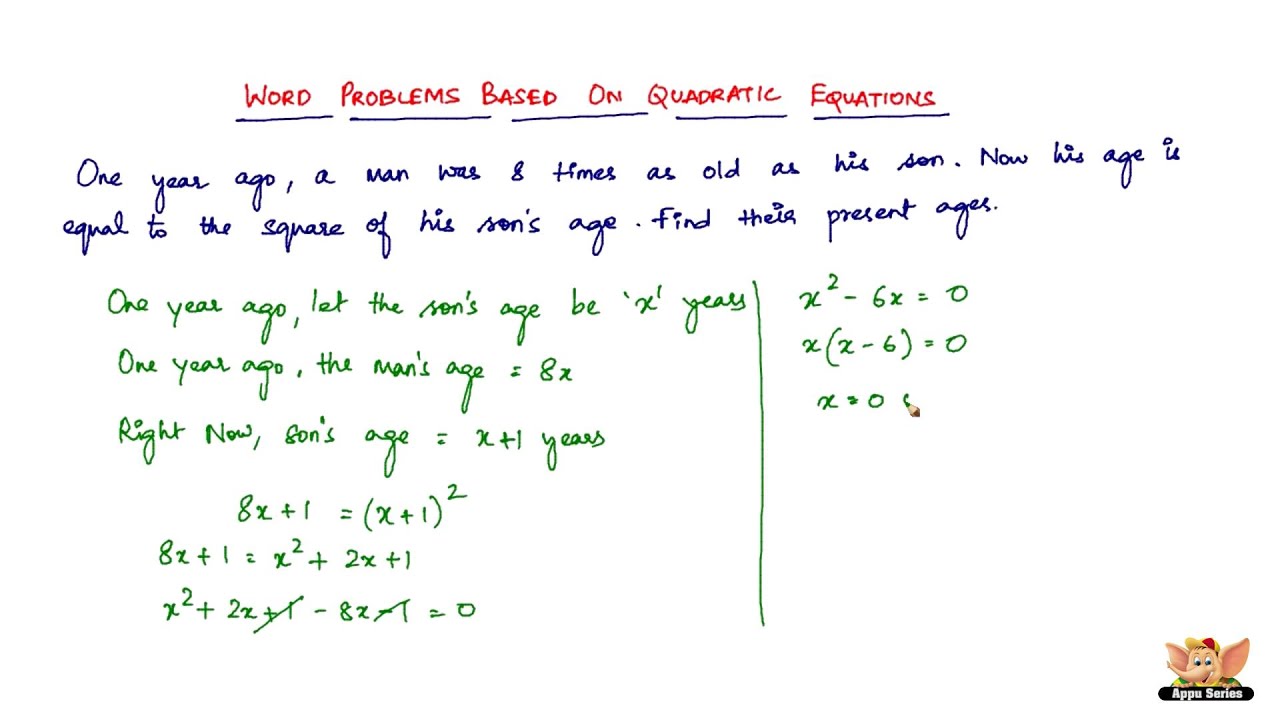 WORD PROBLEMS BASED ON QUADRATIC EQUATIONS
One year ago, a man was 8 times as old as his son. Now his age is
equal to the square of his son's age. Find their present ages.
One year ago, let the son's age be 'x' years
One year ago, the man's age = 8x
Right Now, son's age = x+1 years
8x+1 = (x+1)²
8x+1 = x²+ 2x+1
x²+ 2x+1 - 8x-1 = 0
x²- 6x = 0
x(x-6) = 0
x = 0
Appu Series